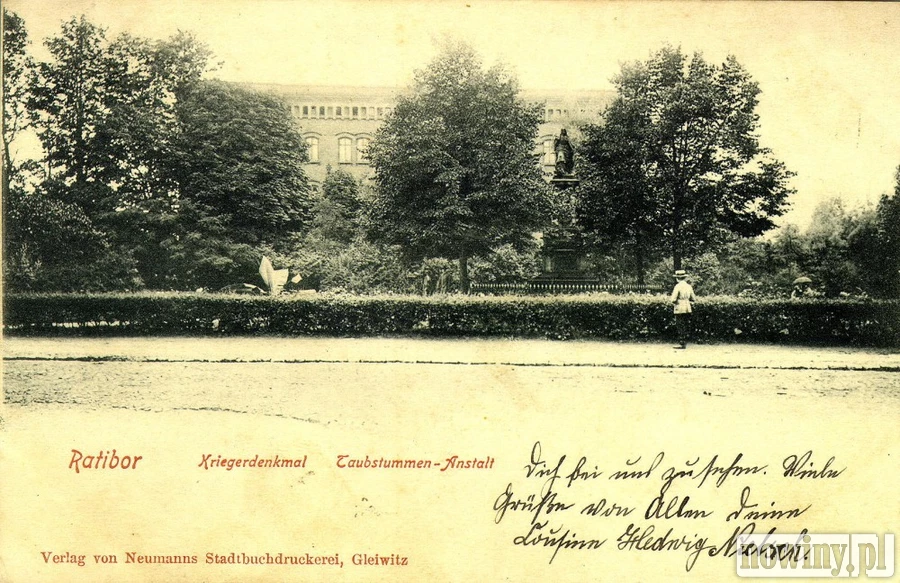 Ratibor Kriegerdenkmal Taubstummen-Anstalt
Dich bei uns zu sehen. Viele
Grüße von Allen Deine
Cousine Hedwig
Verlag von Neumanns Stadtbuchdruckerei, Gleiwitz
nowiny.pl